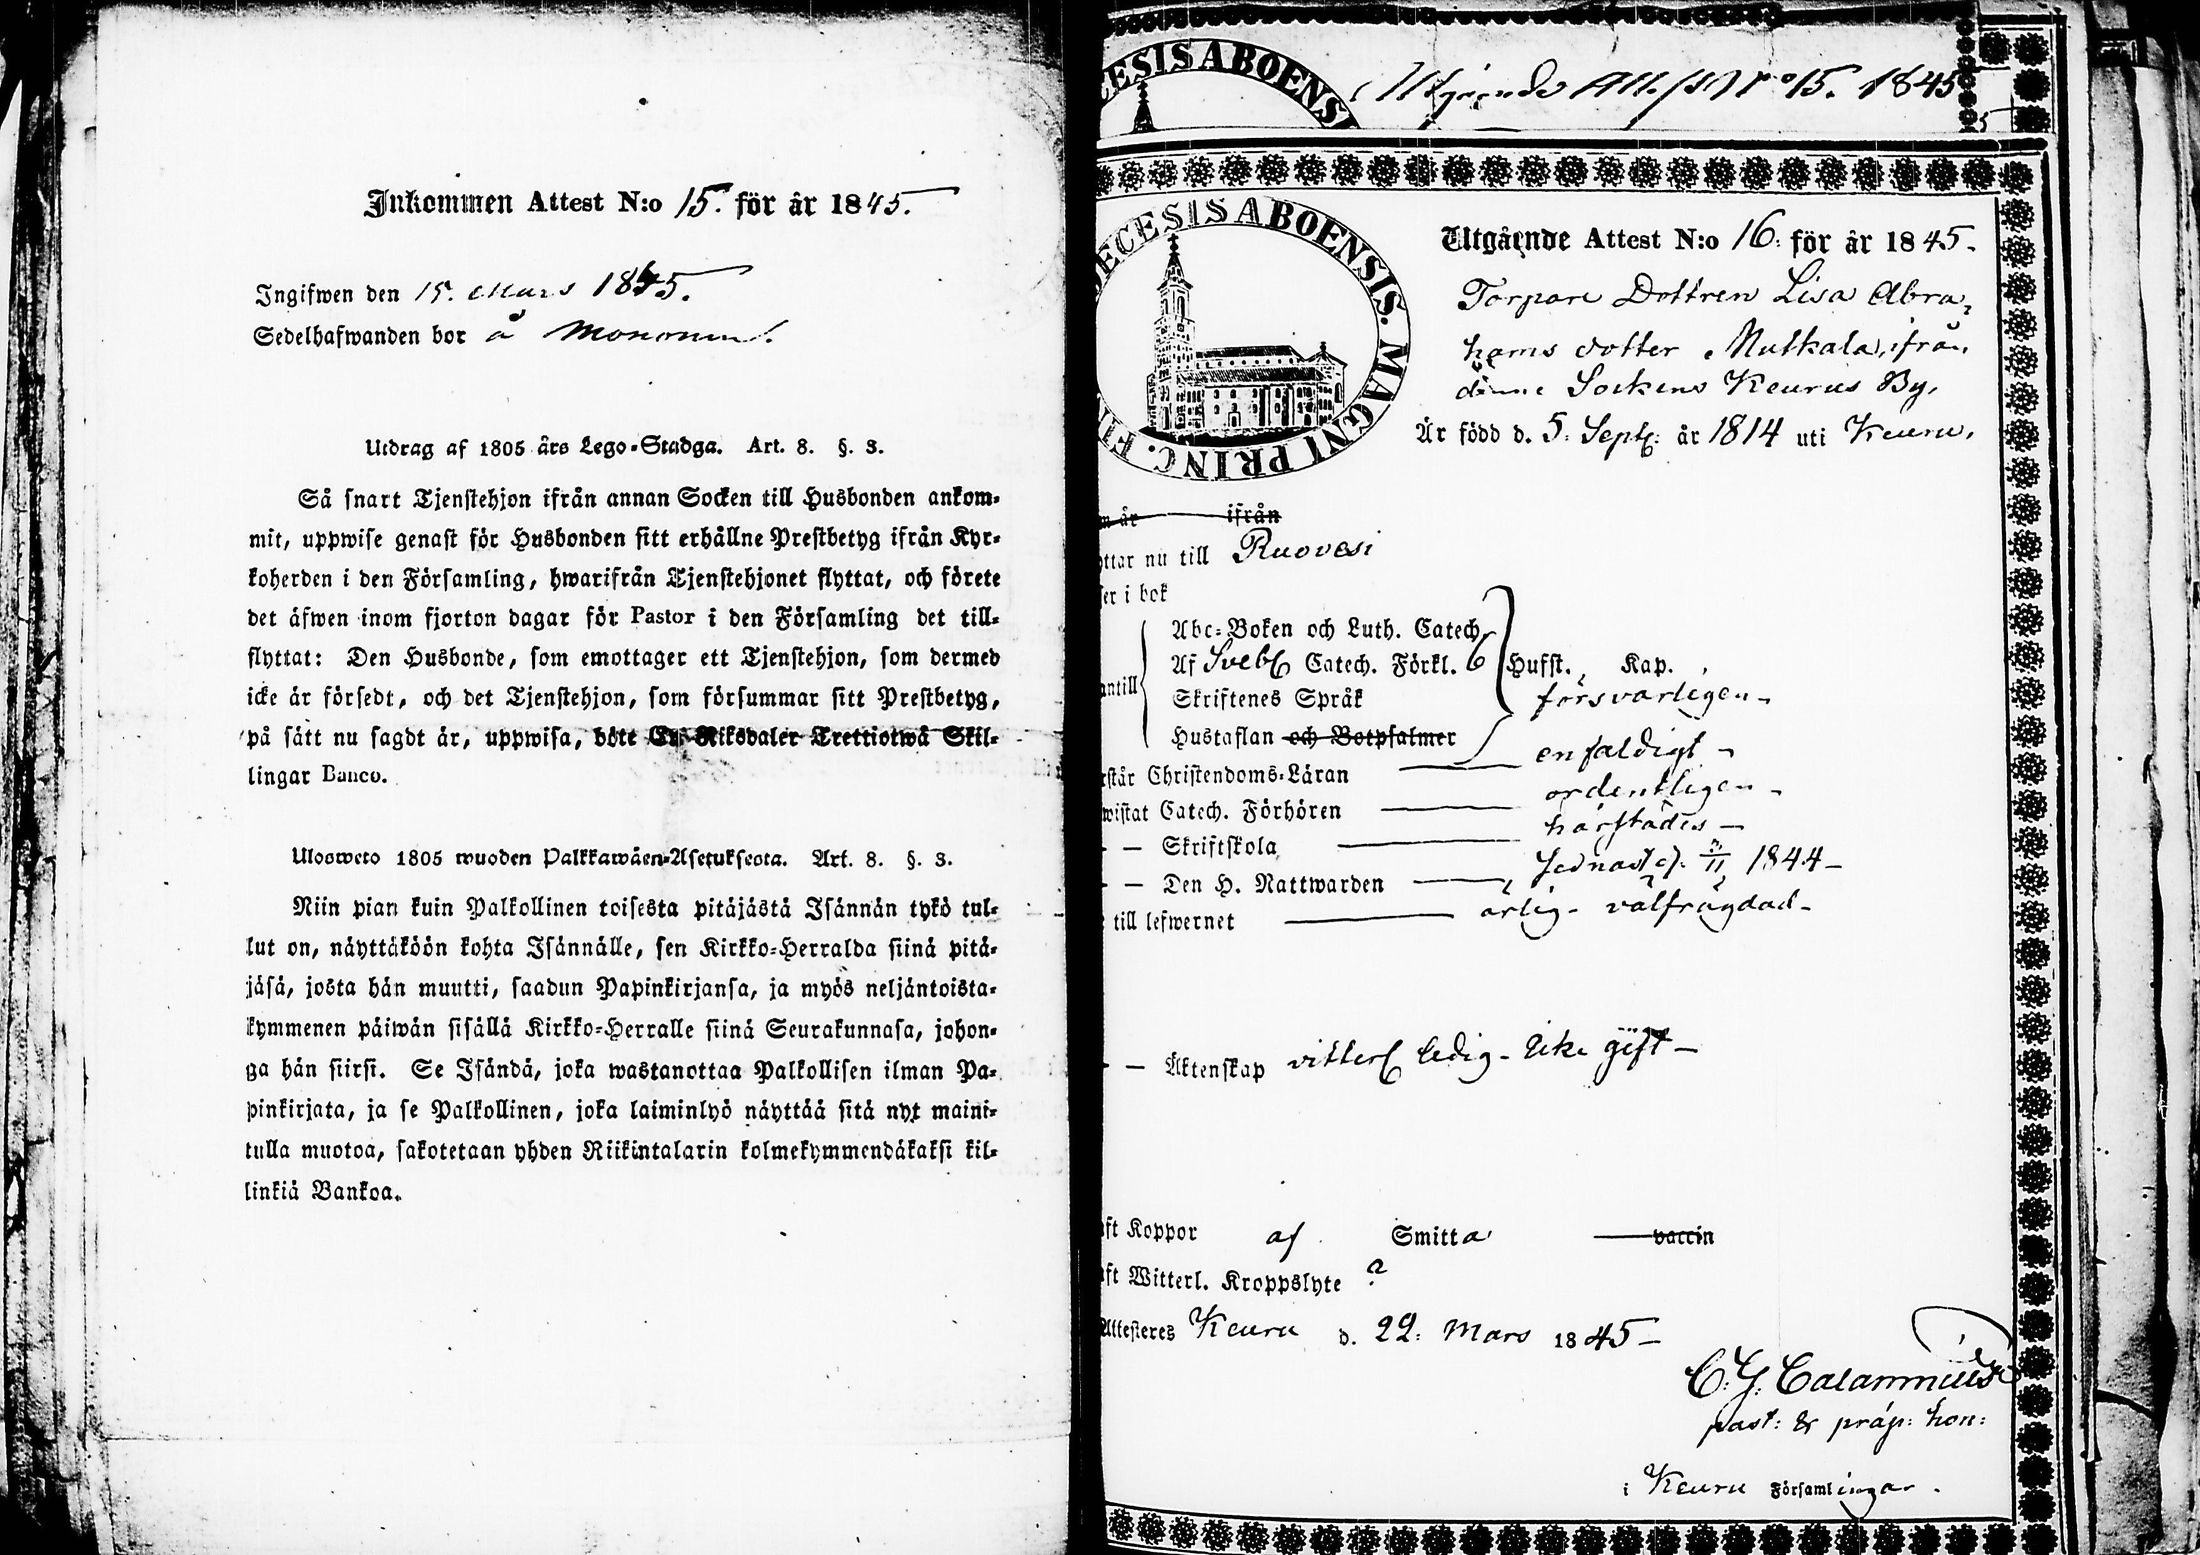 Inkommen Attest N:o 15. för år 1845.
Ingifwen den 15. Mars 1845.
Sedelhafwanden bor å
Utdrag af 1805 års Lego-Stadga. Art. 8. §. 3.
Så snart Tjenstehjon ifrån annan Socken till Husbonden ankom-
mit, uppwise genast för Husbonden sitt erhållne Prestbetyg ifrån Kyr-
koherden i den Församling, hwarifrån Tjenstehjonet flyttat, och förete
det äfwen inom fjorton dagar för Pastor i den Församling det till-
flyttat: Den Husbonde, som emottager ett Tjenstehjon, som dermed
icke är försedt, och det Tjenstehjon, som försummar sitt Prestbetyg,
på sätt nu sagdt är, uppwisa, böte En Riksdaler Trettiotwå Skil-
lingar Banco.
Ulosweto 1805 wuoden Palkkawäen-Asetuksesta. Art. 8. §. 3.
Niin pian kuin Palkollinen toisesta pitäjästä Isännän tykö tul-
lut on, näyttäköön kohta Isännälle, sen Kirkko-Herralda siinä pitä-
jäsä, josta hän muutti, saadun Papinkirjansa, ja myös neljäntoista-
kymmenen päiwän sisällä Kirkko-Herralle siinä Seurakunnasa, johon-
ga hän siirsi. Se Isändä, joka wastanottaa Palkollisen ilman Pa-
pinkirjata, ja se Palkollinen, joka laiminlyö näyttää sitä nyt maini-
tulla muotoa, sakotetaan yhden Riikintalarin kolmekymmendäkaksi kil-
linkiä Bankoa.
ECESIS ABOENS
Utgående Attest N:o 15. 1845
DECESIS ABOENSIS. MAGNI PRINC. FI
Utgående Attest N:o 16: för år 1845.
Torpare Dottren Lisa Abra-
hams dotter Mutkala, ifrån
denne Sockens Keurus By,
Är född d. 5: Sept: år 1814 uti Keuru.
m är ifrån
yttar nu till Ruovesi
ser i bok
Abc-Boken och Luth. Catech.
Af Sveb Catech. Förkl. Husst. Kap.
antill Skriftenes Språk försvarligen -
Hustaflan och Botpsalmer
enfaldigt -
rstår Christendoms-Läran
ordentligen -
wistat Catech. Förhören
härstädes -
- - Skriftskola
sednast d. 11 1844 -
- - Den H. Nattwarden
ärlig - välfrägdad -
till lefwernet
- - Äktenskap vitterl ledig - Icke gift -
ft Koppor af Smitta vaccin
ft Witterl. Kroppslyte ?
Attesteres Keuru d. 22: Mars 1845 -
C. G. Calamnius
past: & præp: hon:
i Keuru Församlingar.